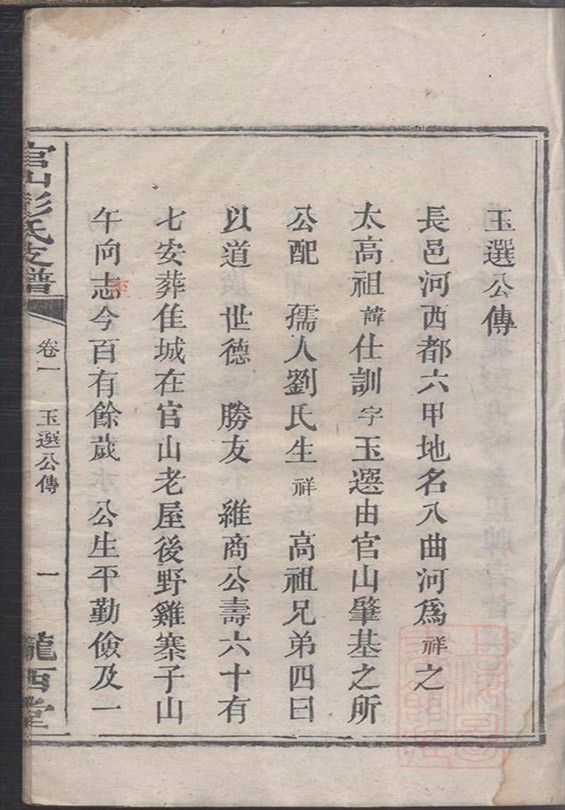 玉選公傳
長邑河西都六甲地名八曲河爲祥之
太高祖諱仕訓字玉選由官山肇基之所
公配 孺人劉氏生祥 高祖兄弟四曰
以道 世德 勝友 維商公壽六十有
七安葬佳城在官山老屋後野雞寨子山
午向志今百有餘歲 公生平勤儉及一
官山彭氏支譜
卷一 玉選公傳 一 隴西堂